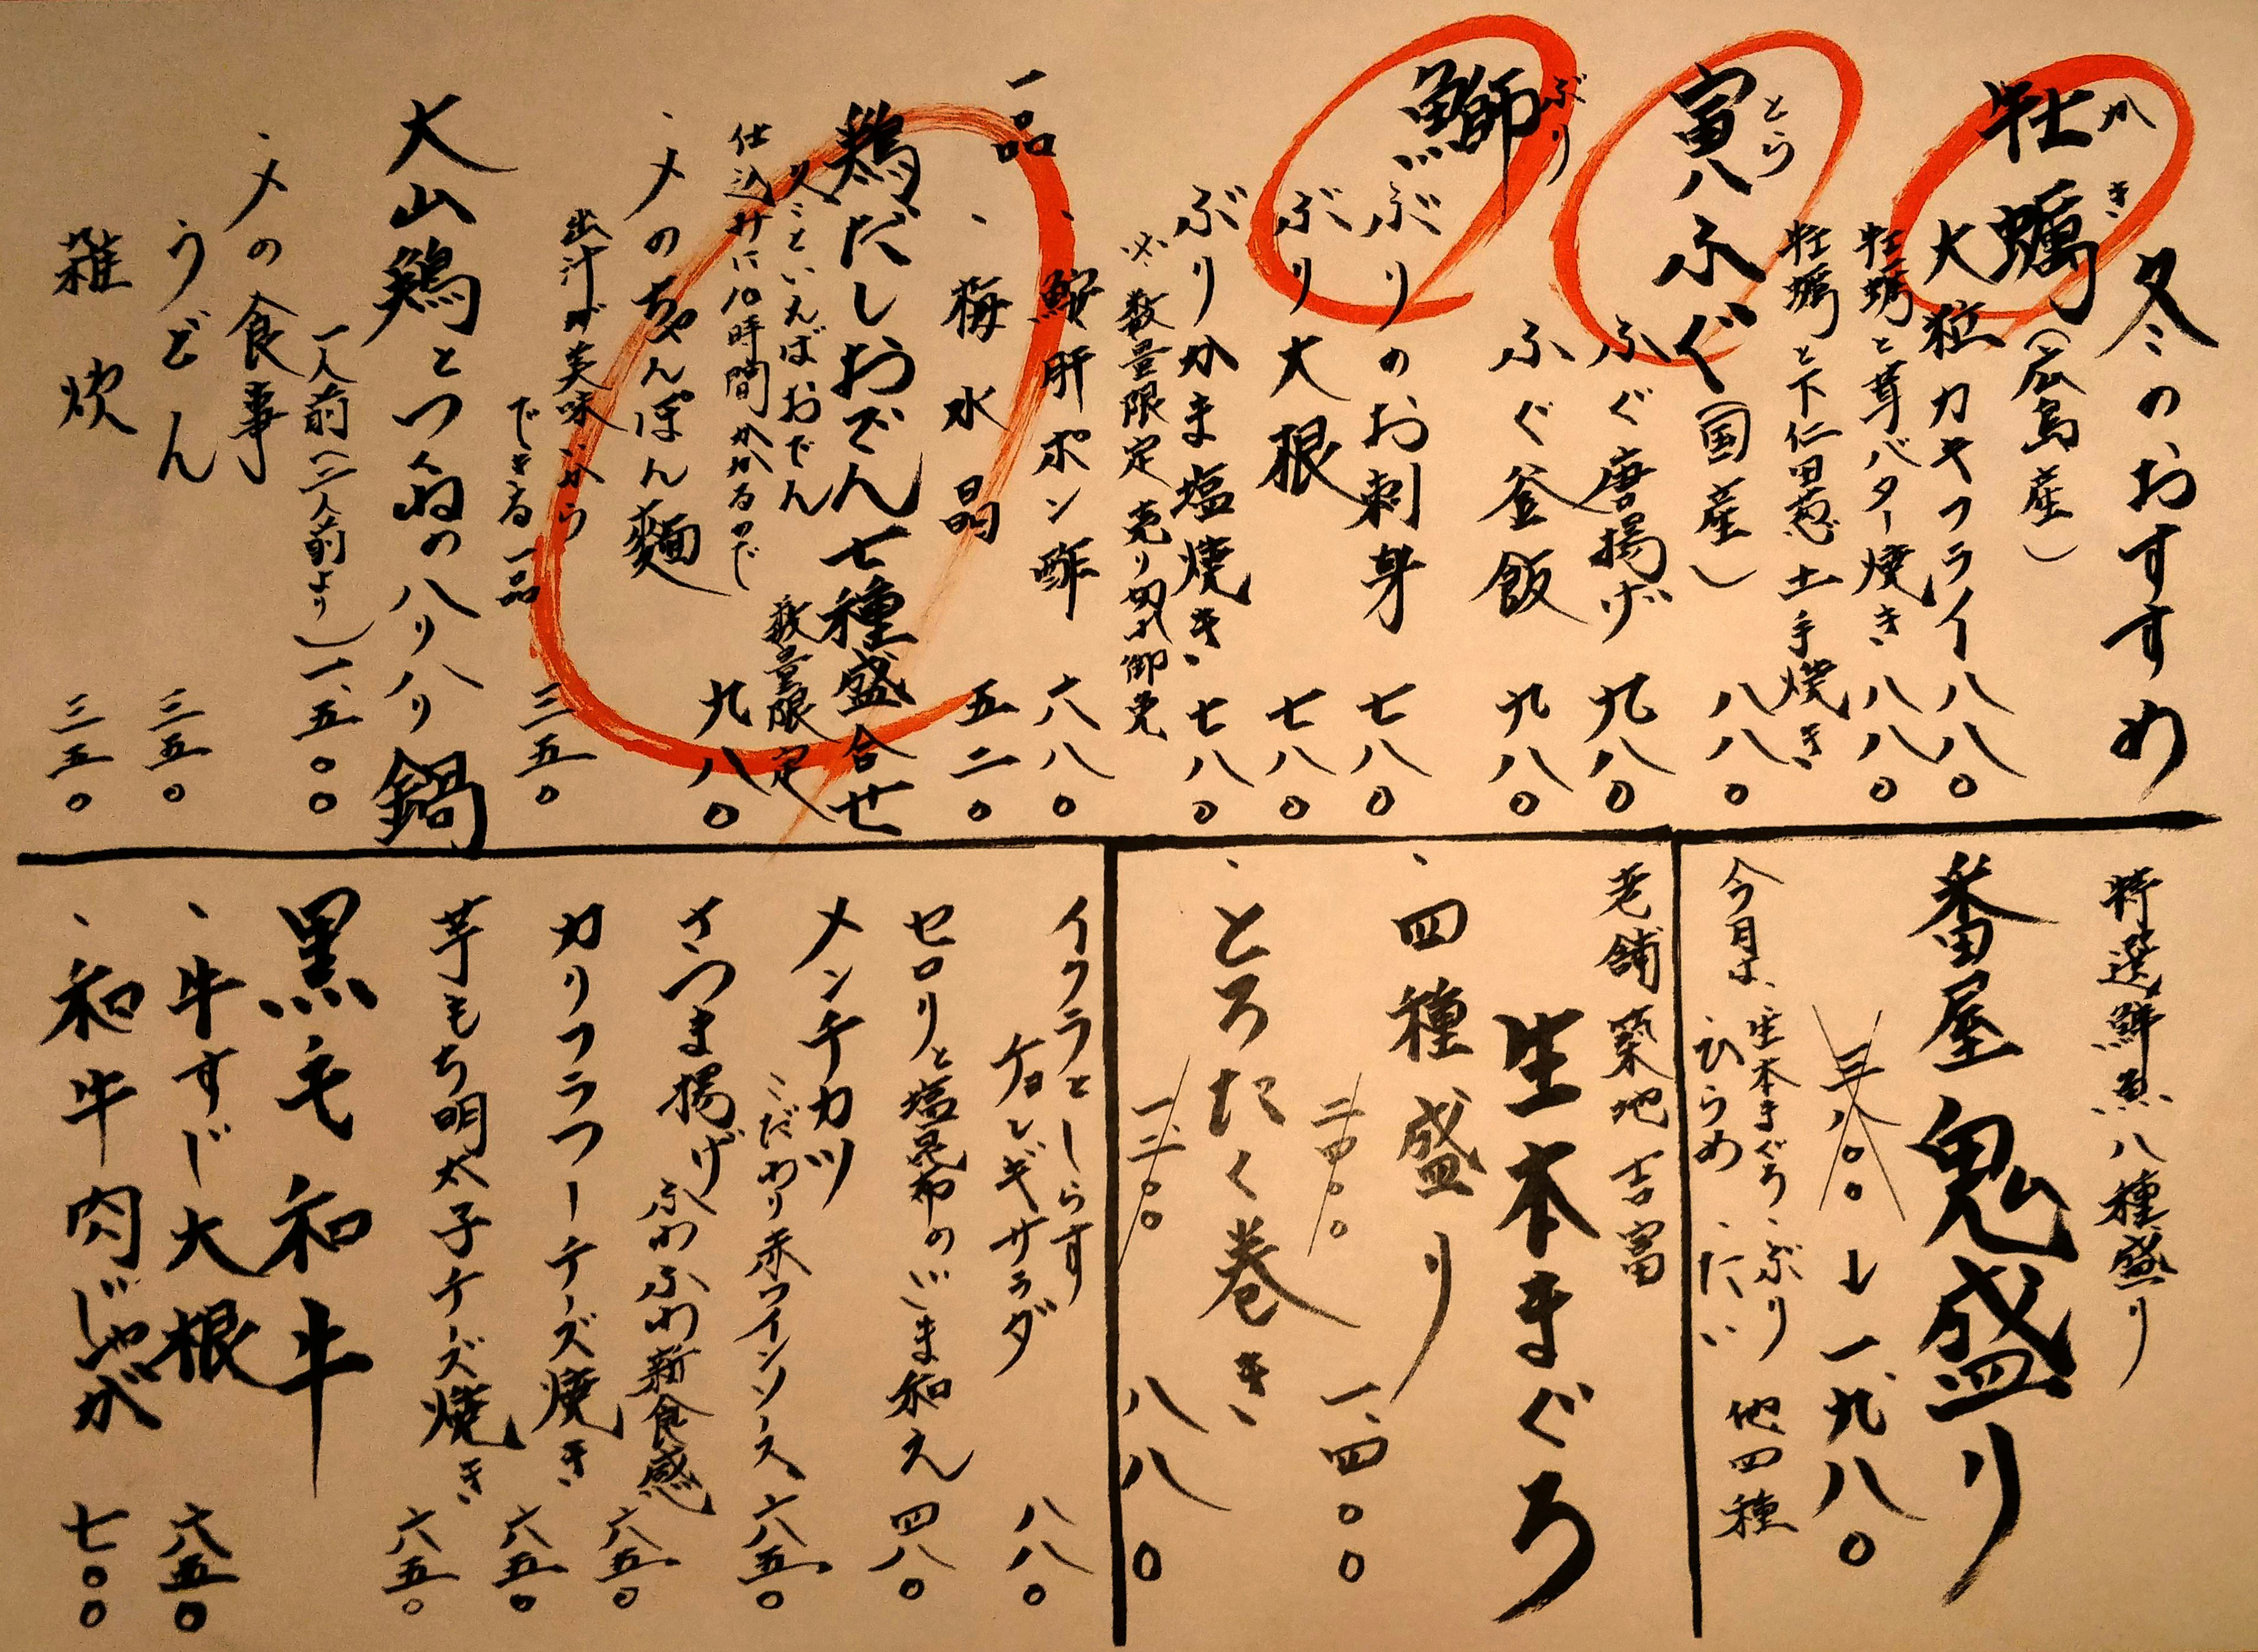 冬のおすすめ
牡蠣(広島産)
かき
大粒カキフライ 八八〇
牡蠣と茸バター焼き 八八〇
牡蠣と下仁田葱土手焼き 八八〇
寅八ふぐ(国産)
とら
ふぐ唐揚げ 九八〇
ふぐ釜飯 九八〇
鰤
ぶり
ぶりのお刺身 七八〇
ぶり大根 七八〇
ぶりかま塩焼き 七八〇
※数量限定 売り切れ御免
一品
、鮟肝ポン酢 六八〇
、梅水晶 五二〇
鶏だしおでん七種盛合せ
冬といえばおでん
数量限定
仕込みに10時間かかるので
九八〇
、〆のちゃんぽん麺
出汁が美味いから
できる一品
三五〇
大山鶏とつくねのハリハリ鍋
一人前(二人前より)一、五〇〇
、〆の食事
うどん 三五〇
雑炊 三五〇
特選鮮魚八種盛り
番屋鬼盛り
三、八〇〇 ↓ 一、九八〇
今月は、生本まぐろ、ぶり
、ひらめ、たい 他四種
老舗築地吉富
生本まぐろ
、四種盛り
二、四〇〇 一、四〇〇
、とろたく巻き
一、二〇〇 八八〇
イクラとしらす
チョレギサラダ 八八〇
セロリと塩昆布のごま和え 四八〇
メンチカツ こだわり赤ワインソース 六五〇
さつま揚げ ふわふわ新食感 六五〇
カリフラワーチーズ焼き 六五〇
芋もち明太子チーズ焼き 六五〇
黒毛和牛
、牛すじ大根 六五〇
、和牛肉じゃが 七〇〇